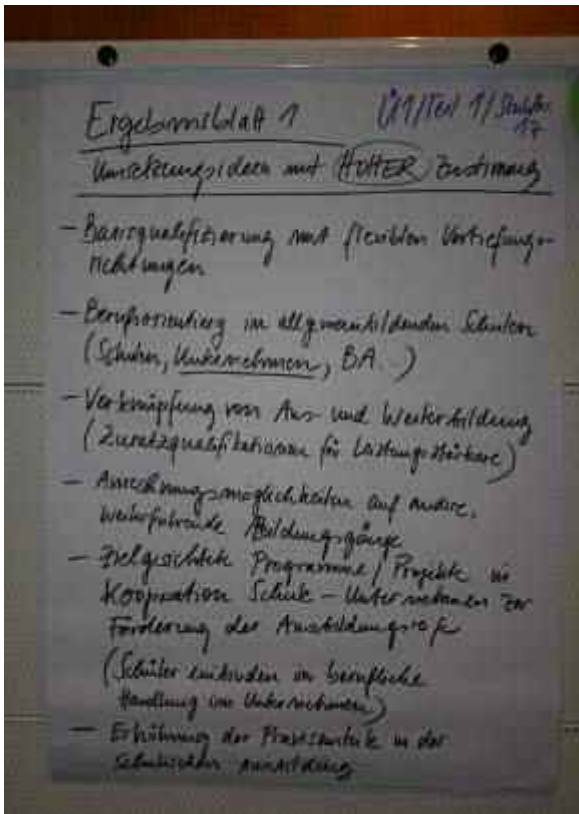 Ergebnisblatt 1
Ü1/Teil 1/
17
Umsetzungsideen mit HOHER Zustimmung
- Basisqualifizierung mit flexiblen Vertiefungs-
richtungen
- Berufsorientierg in allgemeinbildenden Schulen
(Schulen, Unternehmen, BA..)
- Verknüpfung von Aus- und Weiterbildung
(Zusatzqualifikationen für Leistungsstärkere)
- Anrechnungsmöglichkeiten auf andere,
weiterführende Bildungsgänge
- Zielgerichtete Programme / Projekte in
Kooperation Schule - Unternehmen zur
Förderung der Ausbildungsreife
(Schüler einbinden in berufliche
Handlung im Unternehmen)
- Erhöhung der Praxisanteile in der
schulischen Ausbildung